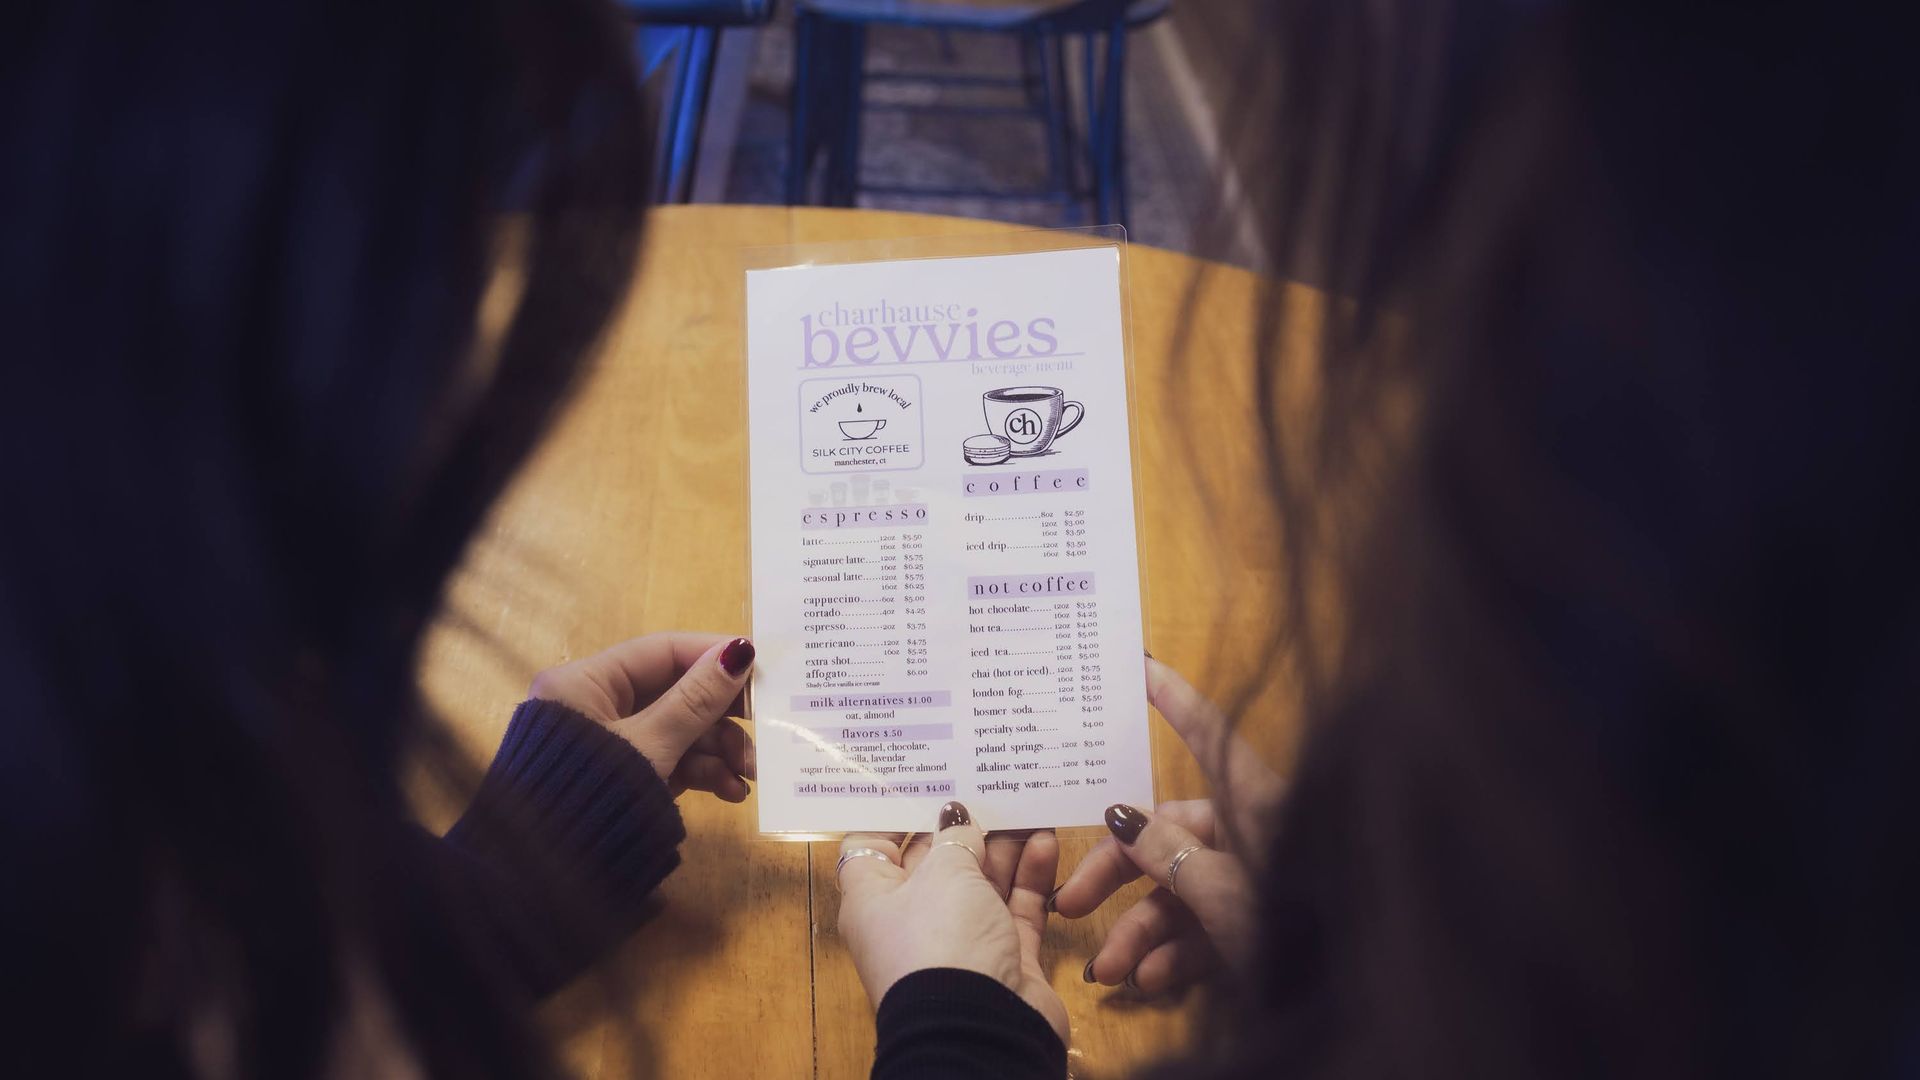 charhause
bevvies
beverage menu
we proudly brew local
SILK CITY COFFEE
manchester, ct
espresso
latte................12oz $5.50
16oz $6.00
signature latte.....12oz $5.75
16oz $6.25
seasonal latte......12oz $5.75
16oz $6.25
cappuccino......6oz $5.00
cortado............4oz $4.25
espresso...........2oz $3.75
americano.........12oz $4.75
16oz $5.25
extra shot........... $2.00
affogato........... $6.00
Shady Glen vanilla ice cream
milk alternatives $1.00
oat, almond
flavors $.50
caramel, chocolate,
lavendar
sugar free vanilla, sugar free almond
add bone broth protein $4.00
ch
coffee
drip..................8oz $2.50
12oz $3.00
16oz $3.50
iced drip............12oz $3.50
16oz $4.00
not coffee
hot chocolate....... 12oz $3.50
16oz $4.25
hot tea................. 12oz $4.00
16oz $5.00
iced tea............... 12oz $4.00
16oz $5.00
chai (hot or iced).. 12oz $5.75
16oz $6.25
london fog........... 12oz $5.00
16oz $5.50
hosmer soda........ $4.00
specialty soda....... $4.00
poland springs..... 12oz $3.00
alkaline water....... 12oz $4.00
sparkling water.... 12oz $4.00